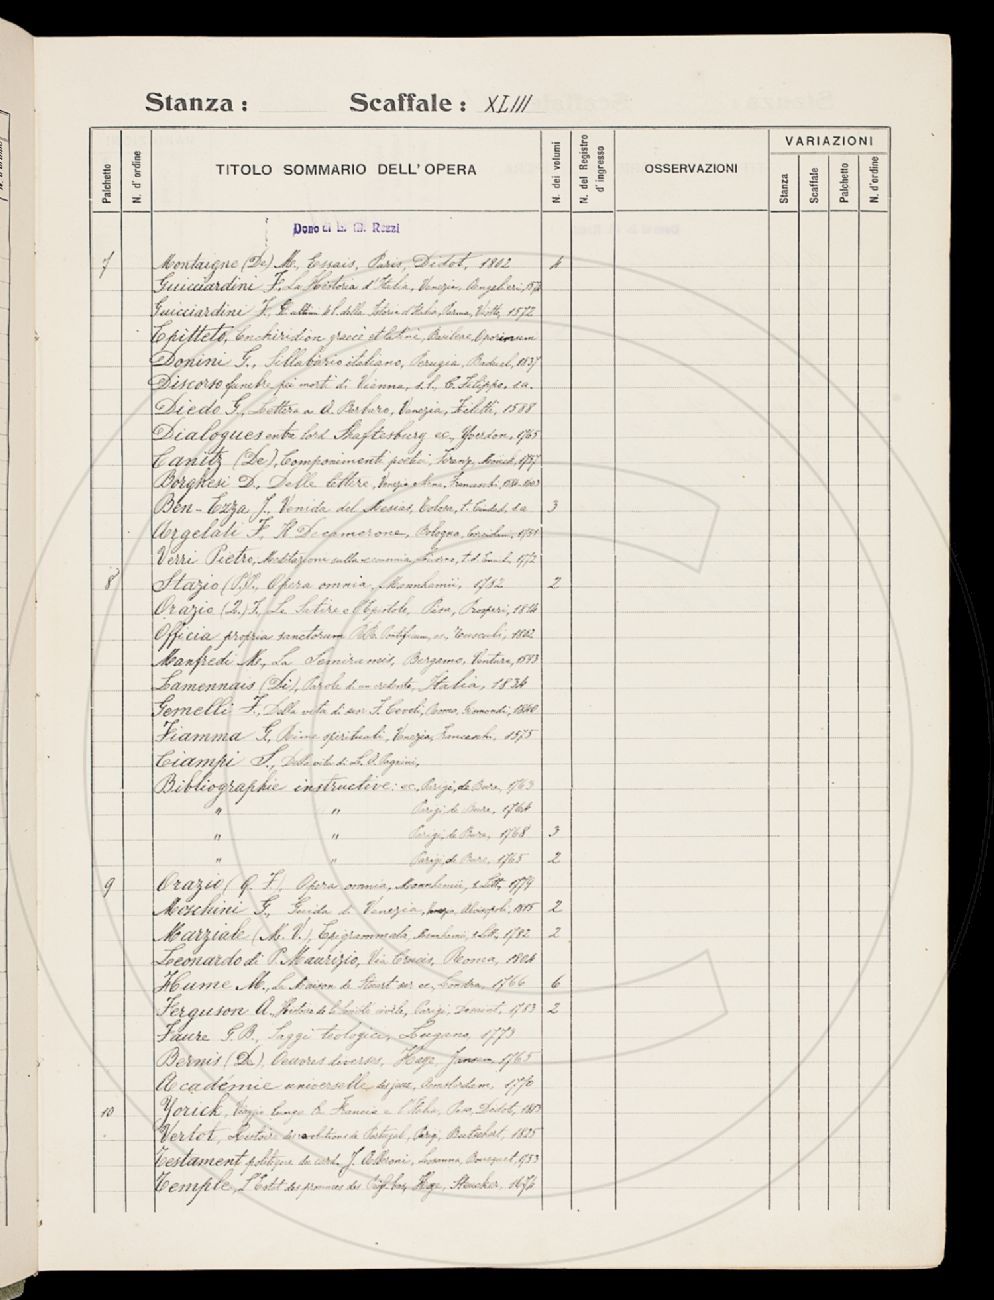 Stanza : Scaffale : XLIII
Palchetto N. d'ordine TITOLO SOMMARIO DELL'OPERA N. dei volumi N. del Registro d'ingresso OSSERVAZIONI VARIAZIONI Stanza Scaffale Palchetto N. d'ordine
Dono di L. M. Rezzi
7 Montaigne (De) M., Essais, Paris, Didot, 1802 4
Guicciardini F., La Historia d'Italia, Venezia, Angelieri,
Guicciardini F., Gli ultimi 4 l. della Istoria d'Italia, Parma, Viotti, 1572
Epitteto, Enchiridion graece et latine, Basileae, Oporinum
Donini G., Sillabario italiano, Perugia, Baduel, 1837
Discorso funebre pei morti di Vienna, s.l., C. Filippo, s.a.
Diedo G., Lettera a A. Barbaro, Venezia, Ziletti, 1588
Dialogues entre lord Shaftesbury ec., Yverdon, 1765
Canitz (De), Componimenti poetici, Firenze, Mouck, 1757
Borghesi D., Delle lettere, Venezia e Siena, Franceschi,
Ben-Ezza J., Venida del Mesias, s.a. 3
Argelati F., Il Decamerone, Bologna, 1751
Verri Pietro, Meditazioni sulla economia, Livorno, 1772
8 Stazio (P.P., Opera omnia, Mannhemii, 1782 2
Orazio (Q.) F., Le Satire e l'Epistole, Pisa, Prosperi, 1814
Officia propria sanctorum Pontificum, ec., Tusculi, 1802
Manfredi M., La Semiramis, Bergamo, Ventura, 1593
Lamennais (Di), Parole di un credente, Italia, 1834
Gemelli F., Della vita di suor F. Roma,
Fiamma G., Rime spirituali, Venezia, Franceschi, 1575
Ciampi S., Della vita di
Bibliographie instructive: ec., Parigi, de Bure, 1763
" " Parigi, de Bure, 1764
" " Parigi, de Bure, 1768 3
" " Parigi, de Bure, 1765 2
9 Orazio (Q. F.), Opera omnia, Mannhemii, s. Lett., 1779
Moschini G., Guida di Venezia, Venezia, Alvisopoli, 1815 2
Marziale (M. V.), Epigrammata, Mannhemii, s. Lett., 1782 2
Leonardo di P. Maurizio, Via Crucis, Roma, 1804
Hume M., La Maison de Stuart sur ec., Londra, 1766 6
Ferguson A., Histoire de la Société civile, Parigi, Desaint, 1783 2
Faure G.B., Saggi teologici, Lugano, 1773
Bernis (De), Oeuvres diverses, Haye, 1765
Académie universelle des jeux, Amsterdam, 1770
10 Yorick, Viaggio lungo la Francia e l'Italia, Pisa, Didot,
Vertot, Histoire des revolutions de Portugal, Parigi, 1825
Testament politique du card. J. Alberoni, Losanna, Bousquet, 1753
Temple, L'Estat des provinces des Haye, Steucker, 1674